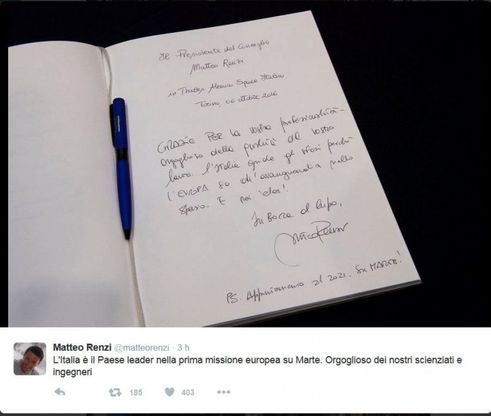 Il Presidente del Consiglio
Matteo Renzi
in Thales Alenia Space Italia
Torino, ottobre 2016
GRAZIE PER la vostra professionalità.
orgoglioso della qualità del vostro
lavoro. l'Italia guida gli sforzi perché
l'EUROPA sia all'avanguardia nello
spazio. E noi
In Bocca al Lupo,
PS. Appuntamento al 2021. Su MARTE!
Matteo Renzi @matteorenzi · 3 h
L'Italia è il Paese leader nella prima missione europea su Marte. Orgoglioso dei nostri scienziati e
ingegneri
185 403